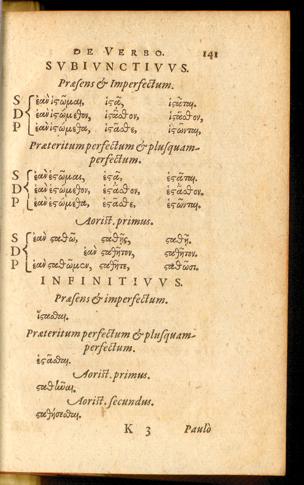 DE VERBO. 141
SVBIVNCTIVVS.
Præsens & Imperfectum.
S ἐὰν ἱςῶμαι, ἱςᾶ, ἱςᾶται.
D ἐὰν ἱςώμεθον, ἱςᾶσθον, ἱςᾶσθον,
P ἐὰν ἱςώμεθα, ἱςᾶσθε, ἱςῶνται.
Præteritum perfectum & plusquam-
perfectum.
S ἐὰν ἑςῶμαι, ἑςᾶ, ἑςᾶται.
D ἐὰν ἑςώμεθον, ἑςᾶσθον, ἑςᾶσθον.
P ἐὰν ἑςώμεθα, ἑςᾶσθε, ἑςῶνται.
Aorist. primus.
S ἐὰν ςαθῶ, ςαθῇς, ςαθῇ.
D ἐὰν ςαθῆτον, ςαθῆτον.
P ἐὰν ςαθῶμεν, ςαθῆτε, ςαθῶσι.
INFINITIVVS.
Præsens & imperfectum.
ἵςασθαι.
Præteritum perfectum & plusquam-
perfectum.
ἑςᾶσθαι.
Aorist. primus.
ςαθῆναι.
Aorist. secundus.
K 3 Paulò